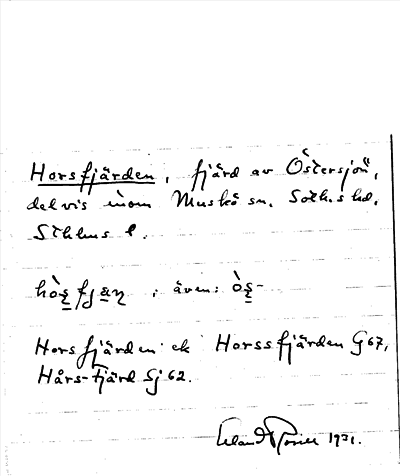 Horsfjärden, fjärd av Östersjön,
delvis inom Muskö sn. Soth.s hd,
Sthlms l.
hòs̠fja̠ṇ ; även: òs̠-
Horsfjärden ek Horssfjärden G 67,
Hårs-Fjärd Sj 62.
Erland Rosell 1931.